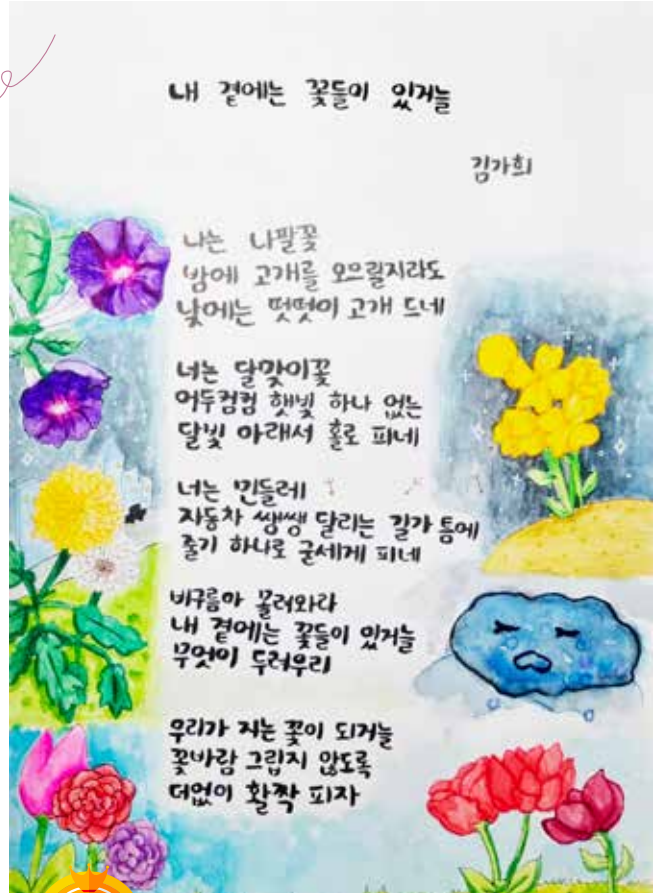 내 곁에는 꽃들이 있거늘
김가희
나는 나팔꽃
밤에 고개를 오므릴지라도
낮에는 떳떳이 고개 드네
너는 달맞이꽃
어두컴컴 햇빛 하나 없는
달빛 아래서 홀로 피네
너는 민들레
자동차 쌩쌩 달리는 길가 틈에
줄기 하나로 굳세게 피네
비구름아 몰려와라
내 곁에는 꽃들이 있거늘
무엇이 두려우리
우리가 지는 꽃이 되거늘
꽃바람 그립지 않도록
더없이 활짝 피자